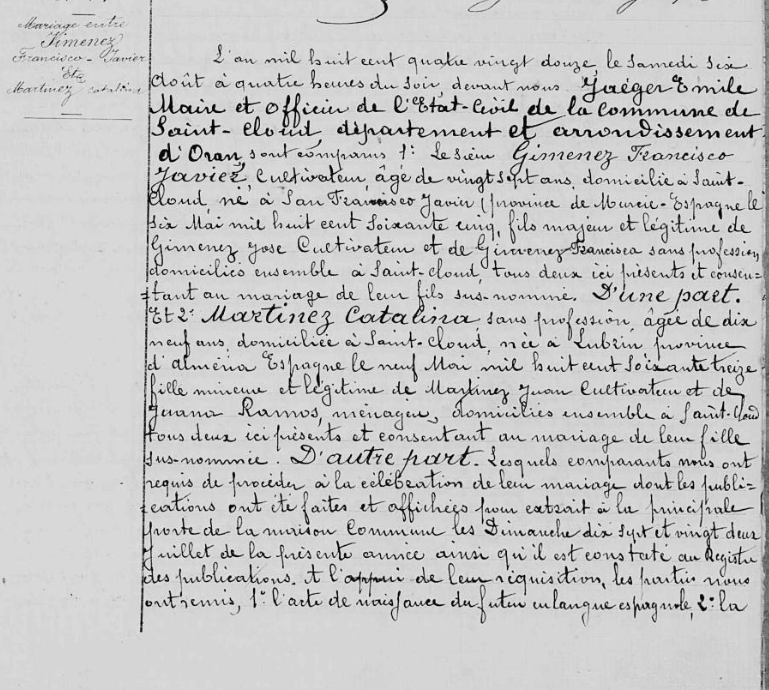 Mariage entre
Ximenez
Francisco-Javier
Et
Martinez Catalina
L'an mil huit cent quatre vingt douze, le samedi six
Août à quatre heures du soir, devant nous Jaéger Emile
Maire et Officier de l'Etat-Civil de la Commune de
Saint-Cloud département et arrondissement
d'Oran, sont comparus 1: Le sieur Gimenez Francisco
Javier, Cultivateur, âgé de vingt sept ans, domicilié à Saint-
Cloud, né à San Francisco Javier (province de Murcie-Espagne le
six Mai mil huit cent soixante cinq, fils majeur et légitime de
Gimenez Jose Cultivateur et de Francisca sans profession,
domiciliés ensemble à Saint-Cloud, tous deux ici présents et consen-
=tant au mariage de leur fils sus-nommé. D'une part.
Et 2: Martinez Catalina sans profession, âgée de dix
neuf ans, domiciliée à Saint-Cloud, née à Lubrin province
d'Alméria Espagne le neuf Mai mil huit cent soixante treize
fille mineure et légitime de Martinez Juan Cultivateur et de
Juana Ramos, ménagère, domiciliés ensemble à Saint-Cloud
tous deux ici présents et consentant au mariage de leur fille
sus-nommée. D'autre part. Lesquels comparants nous ont
requis de procéder à la célébration de leur mariage dont les publi=
=cations ont été faites et affichées pour extrait à la principale
porte de la maison Commune les Dimanche dix sept et vingt deux
Juillet de la présente année ainsi qu'il est constaté au Registre
des publications. A l'appui de leur réquisition, les parties nous
ont remis, 1: l'acte de naissance du futur en langue espagnole, 2: la